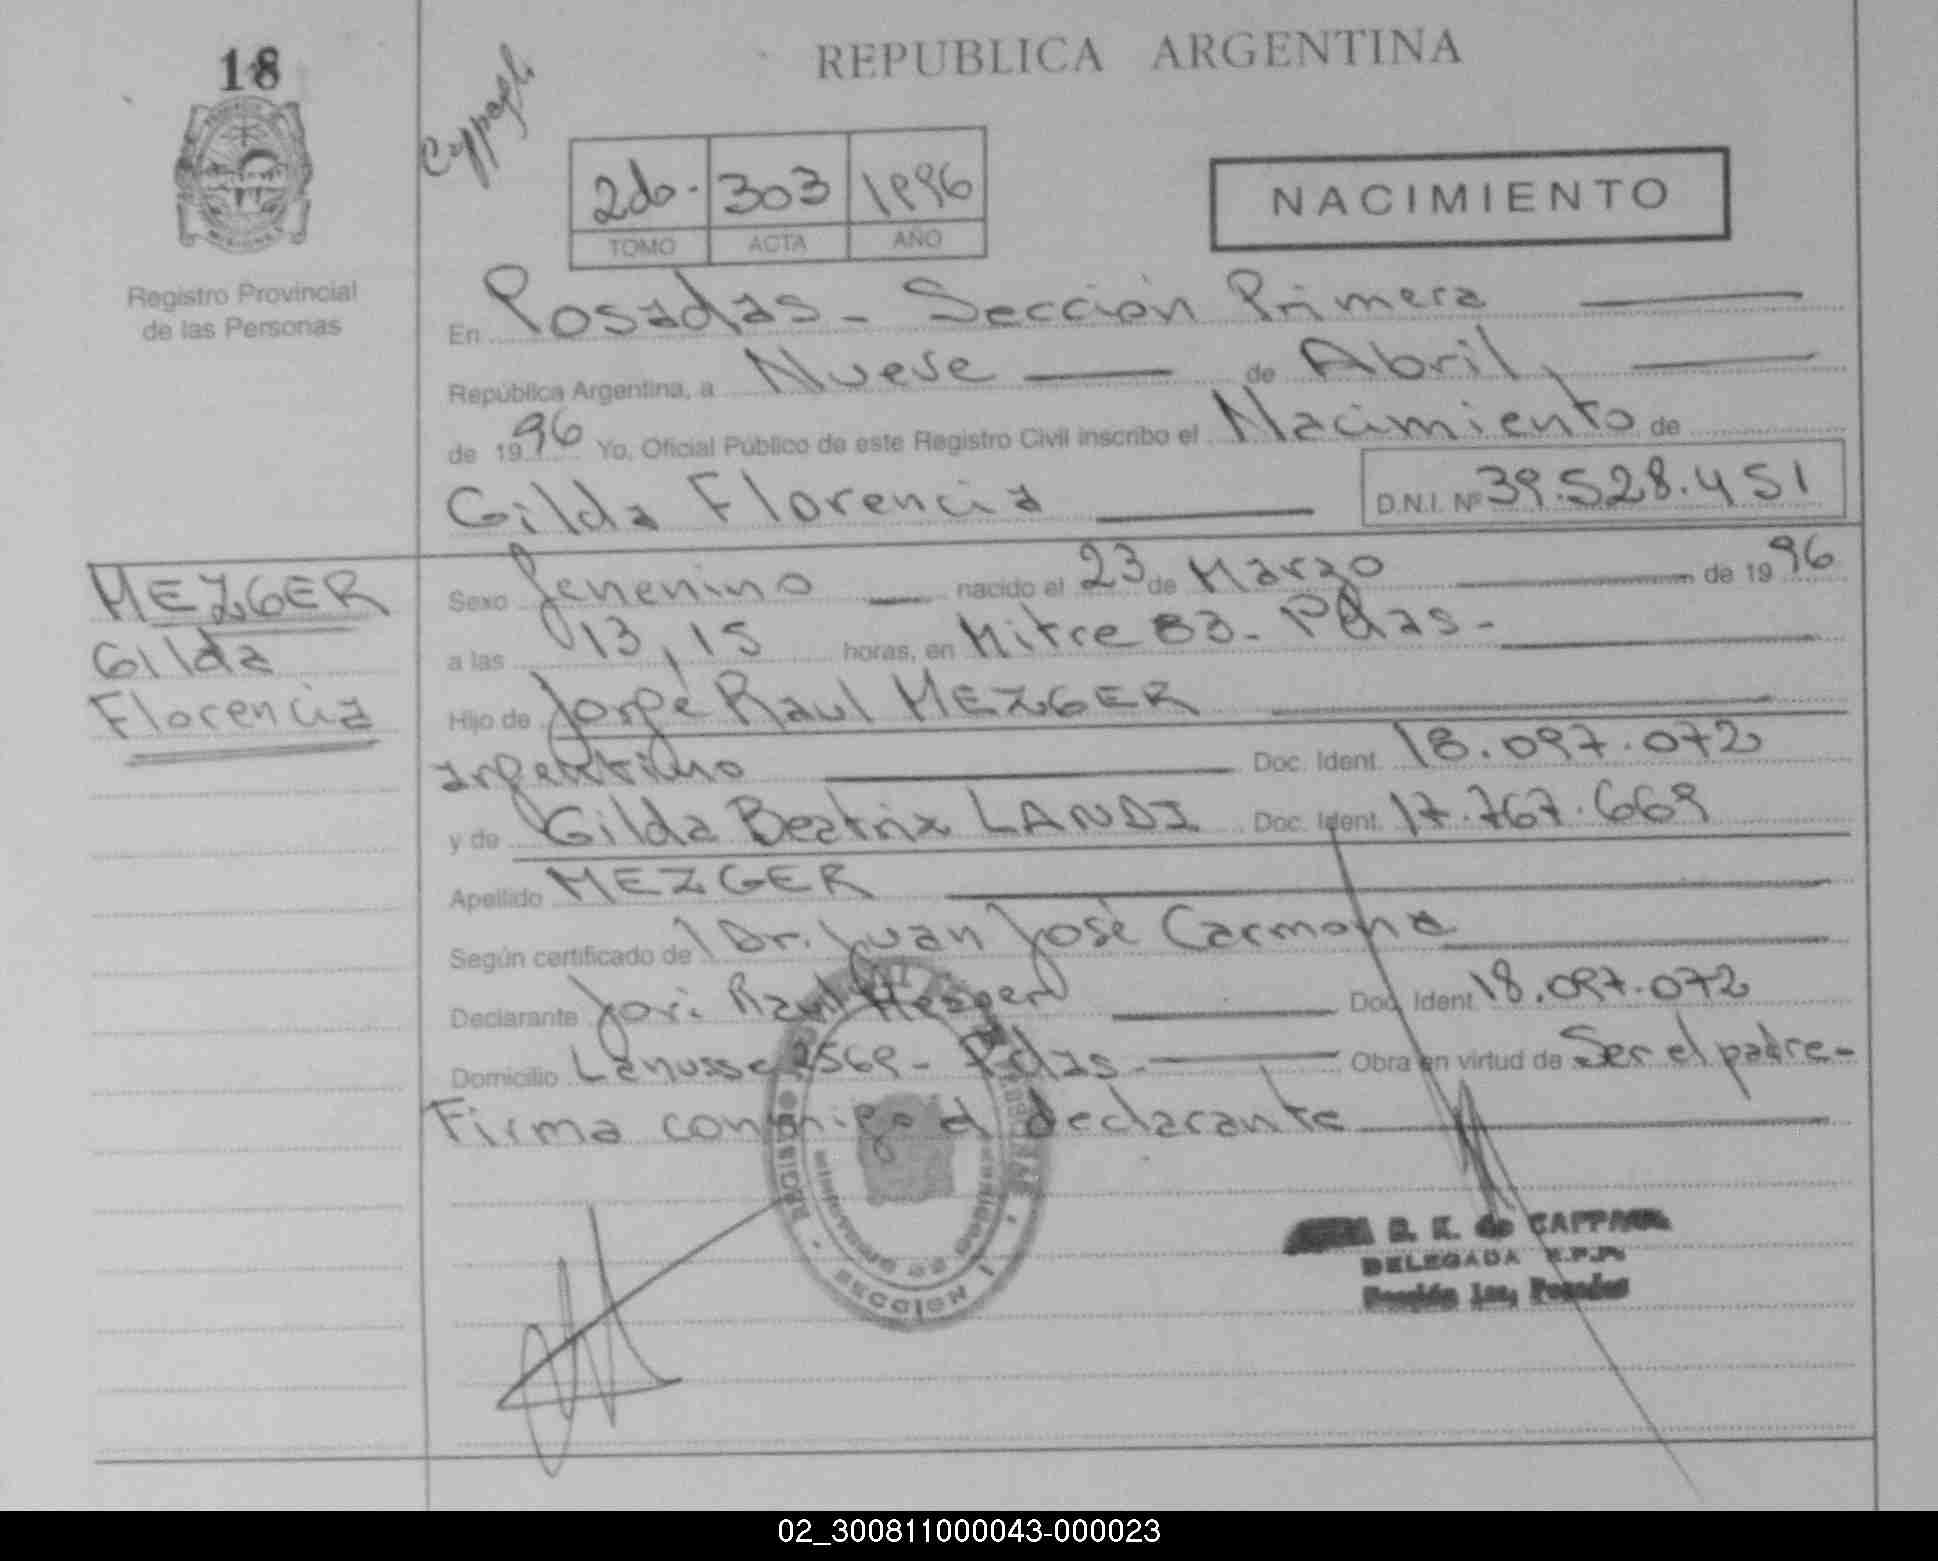 18
REPUBLICA ARGENTINA
2do. 303 1996
TOMO ACTA AÑO
NACIMIENTO
Registro Provincial
de las Personas
En Posadas - Sección Primera
República Argentina, a Nueve de Abril,
de 1996 Yo, Oficial Público de este Registro Civil inscribo el Nacimiento de
Gilda Florencia
D.N.I. Nº 39.528.451
MEZGER
Gilda
Florencia
Sexo femenino nacido el 23 de Marzo de 1996
a las 13,15 horas, en Mitre 83 - Pdas -
Hijo de Jorge Raul MEZGER
argentino Doc. Ident. 18.097.072
y de Gilda Beatriz LANDI Doc. Ident. 17.767.669
Apellido MEZGER
Según certificado de Dr. Juan José Carmona
Declarante Raul Mezger Doc. Ident. 18.097.072
Domicilio Lanusse 2569 - Pdas - Obra en virtud de Ser el padre -
Firma conmigo el declarante
SECCION 1
B. K. de
DELEGADA R.P.P.
Sección 1ra, Posadas
02_300811000043-000023